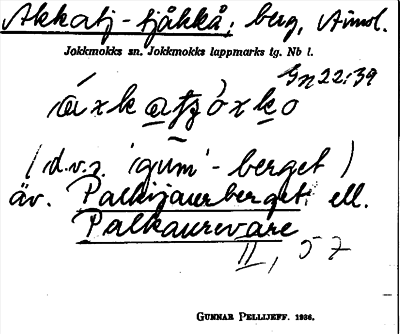 Akkatj-tjåkkå; berg, Aimol.
Jokkmokks sn. Jokkmokks lappmarks tg. Nb l.
Gn 22:39
áxkatzóxko
(d.v.s. 'gum'-berget)
äv. Palkijaurberget ell.
Palkaurevare
II, 57
GUNNAR PELLIJEFF. 1936.